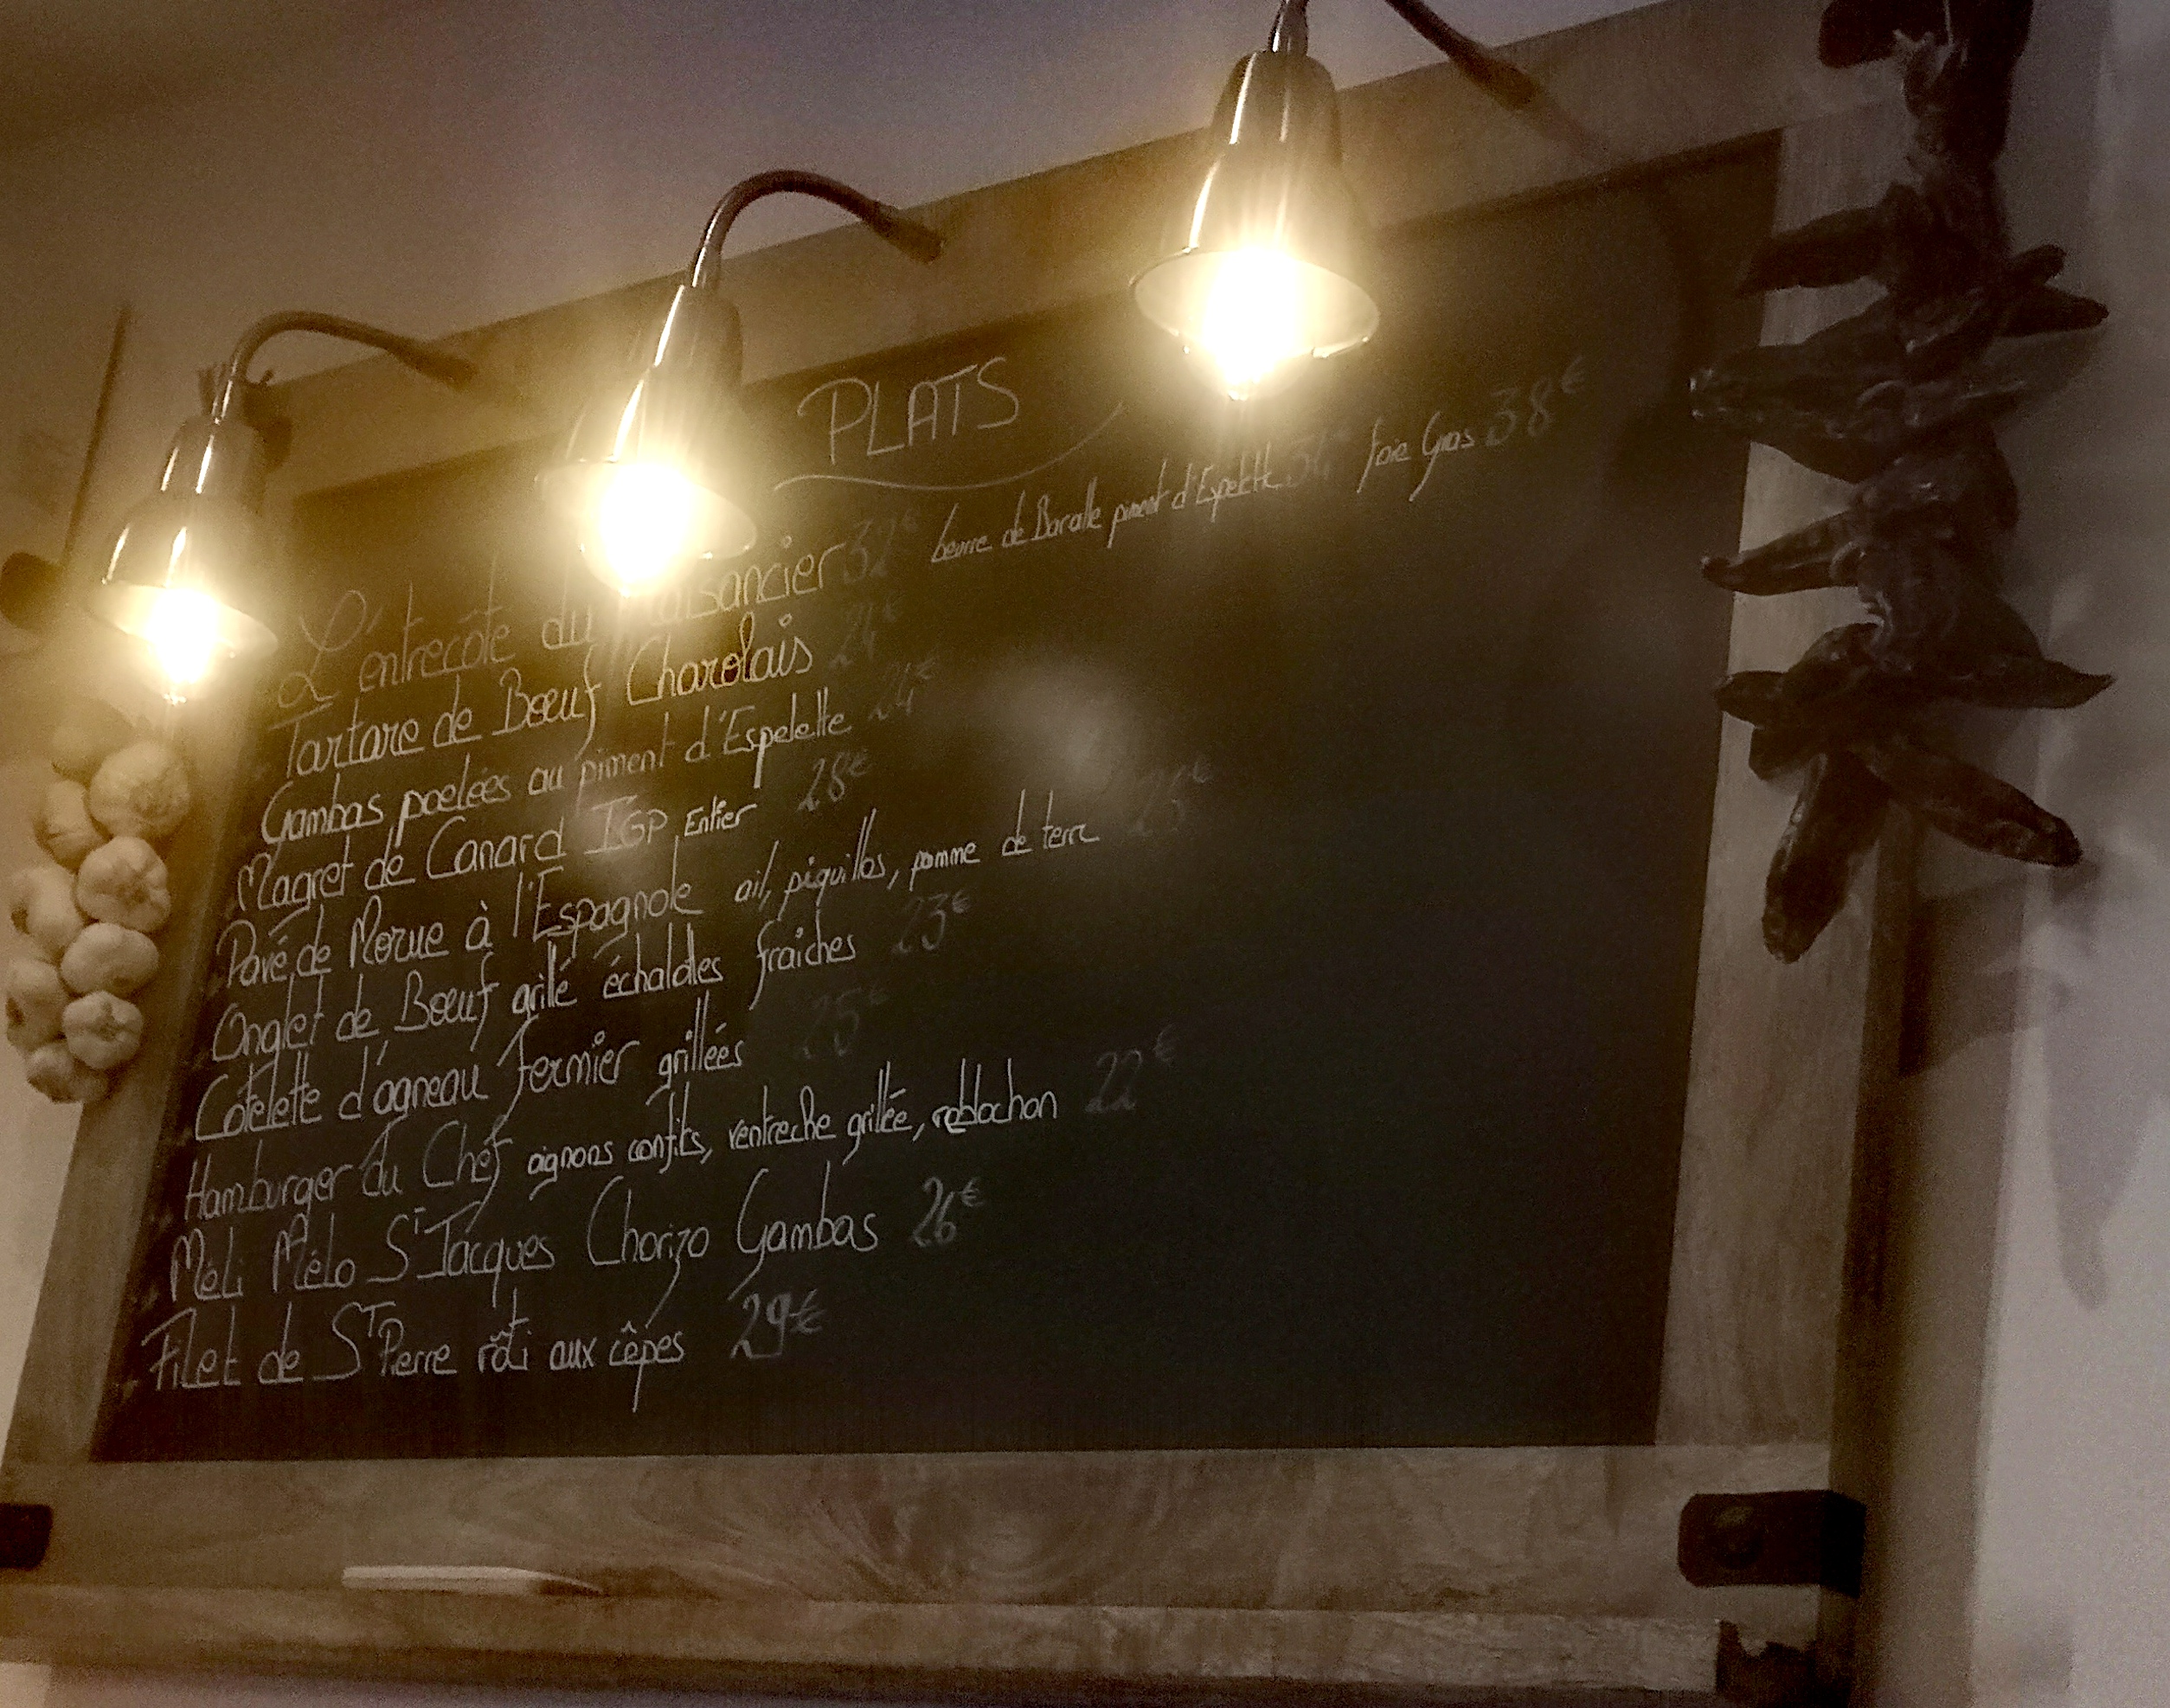 PLATS
L'entrecôte du 32€ beurre de Baratte piment d'Espelette 34€ foie Gras 38€
Tartare de Boeuf Charolais 24€
Gambas poelées au piment d'Espelette 24€
Magret de Canard IGP Entier 28€
Pavé de Morue à l'Espagnole ail, piquillos, pomme de terre 25€
Onglet de Boeuf grillé échalotes fraiches 23€
Côtelette d'agneau fermier grillées 25€
Hamburger du Chef oignons confits, ventreche grillée, reblochon 22€
Méli Mélo St Jacques Chorizo Gambas 26€
Filet de St Pierre rôti aux cêpes 29€